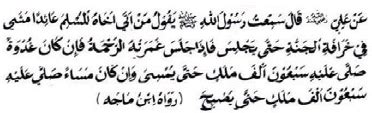 عَنْ عَلِيٍّ ﷺ قَالَ سَمِعْتُ رَسُولَ اللهِ ﷺ يَقُولُ مَنْ اَتٰى اَخَاهُ الْمُسْلِمَ عَائِدًا مَشٰى
فِي خَرَافَةِ الْجَنَّةِ حَتّٰى يَجْلِسَ فَاِذَا جَلَسَ غَمَرَتْهُ الرَّحْمَةُ فَاِنْ كَانَ غُدْوَةً
صَلّٰى عَلَيْهِ سَبْعُوْنَ اَلْفَ مَلَكٍ حَتّٰى يُمْسِيَ وَاِنْ كَانَ مَسَاءً صَلّٰى عَلَيْهِ
سَبْعُوْنَ اَلْفَ مَلَكٍ حَتّٰى يُصْبِحَ (رَوَاهُ اِبْنُ مَاجَه)